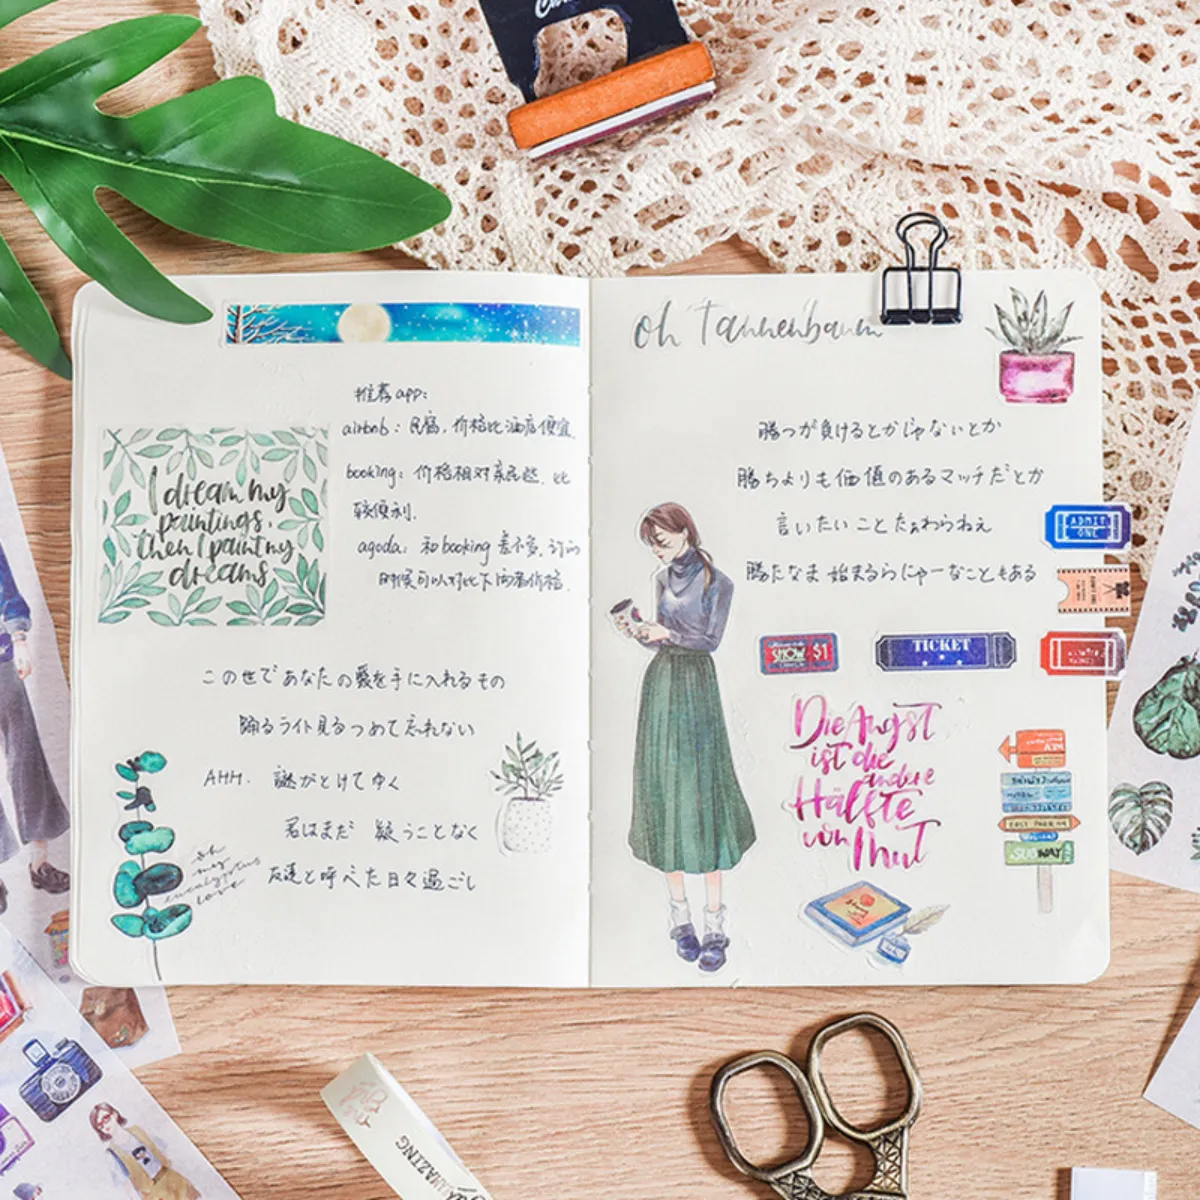 推荐app:
airbnb：民宿，价格比酒店便宜.
booking：价格相对亲民些，比
较便利.
agoda：和booking差不多，订的
时候可以对比下两者价格.
I dream my
paintings,
then I paint my
dreams
この世であなたの愛を手に入れるもの
踊るライト見るつめて忘れない
AHH. 謎がとけてゆく
君はまだ 疑うことなく
友達と呼べた日々過ごし
oh
my
eucalyptus
love
oh Tannenbaum
勝つが負けるとかじゃないとか
勝ちよりも価値のあるマッチだとか
言いたいことたぁわらねぇ
勝たなま始まるらにゃーなこともある
ADMIT
ONE
SHOW $1
TICKET
Die Angst
ist die
andere
Hälfte
von Mut
EAST PARK
SUBWAY
AMAZING